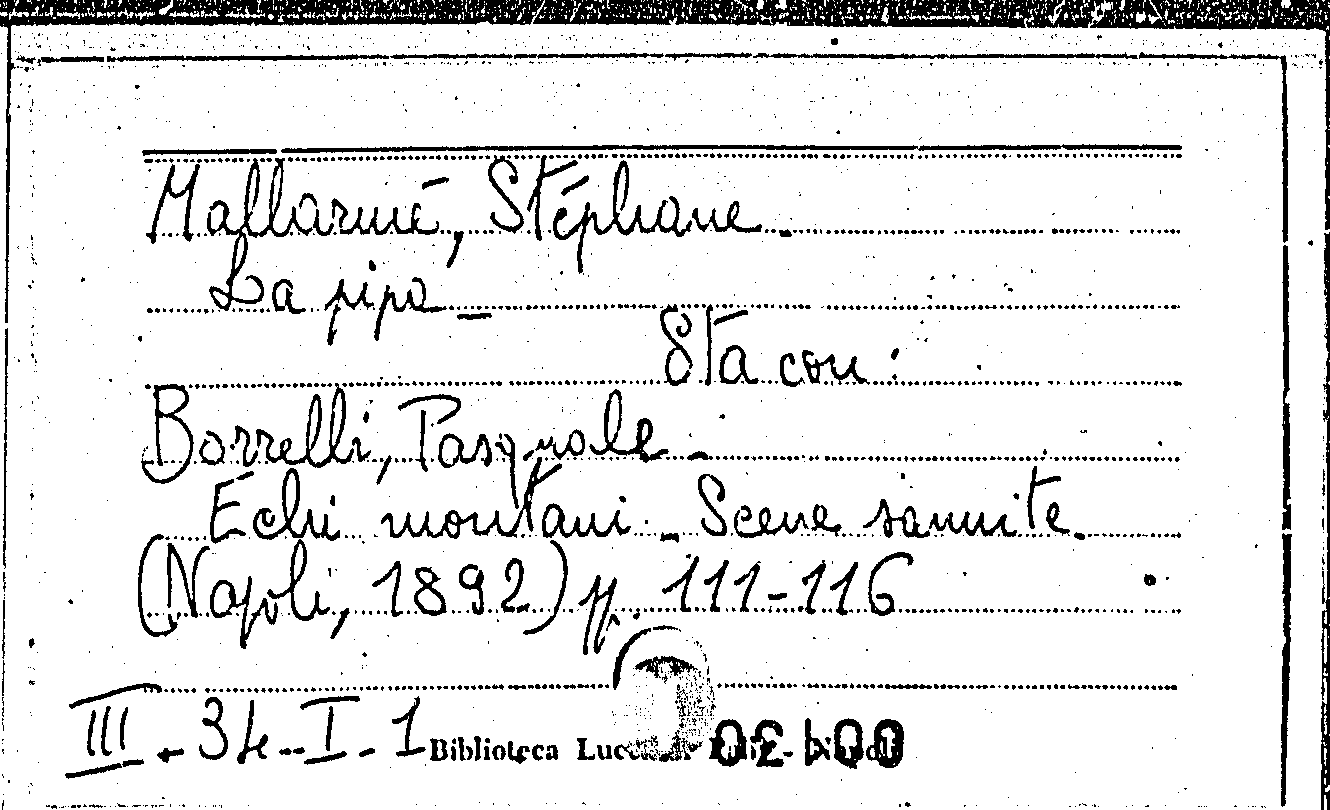 Mallarmé, Stéphane.
La pipa _
Sta con:
Borrelli, Pasquale -
Echi montani. - Scene sannite.
(Napoli, 1892) pp. 111-116
III - 34 - I - 1
Biblioteca